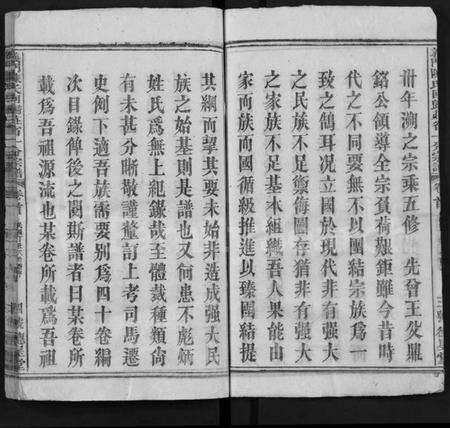 卅年溯之宗乘五修　先曾王父鼎
鎔公領導全宗負荷艱鉅雖今昔時
代之不同要無不以團結宗族為一
致之鵠耳况立國於現代非有強大
之民族不足禦侮圖存猶非有強大
之家族不足基本組織吾人果能由
家而族而國循級推進以臻團結提
其綱而望其要未始非造成強大民
族之始基則是譜也又何患不彪炳
姓氏為無上紀錄哉至體裁種類尚
有未甚分晰敬謹釐訂上考司馬遷
史例下適吾族需要別為四十卷編
次目錄俾後之閱斯譜者曰某卷所
載為吾祖源流也某卷所載為吾祖